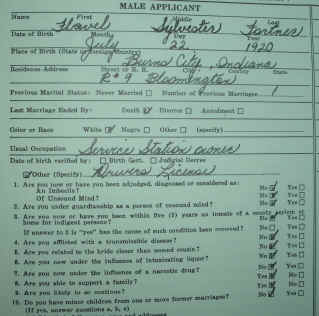 MALE APPLICANT
Name First Middle Last
Flavel Sylvester Fortner
Date of Birth Month Day
July 22, 1920
Place of Birth (State or Foreign Country)
Burns City, Indiana
Residence Address Street or R. R. City County State
R# 9 Bloomington
Previous Marital Status: Never Married ☐ Number of Previous Marriages 1
Last Marriage Ended By: Death ☑ Divorce ☐ Annulment ☐
Color or Race White ☑ Negro ☐ Other ☐ (specify)
Usual Occupation Service Station owner
Date of birth verified by: ☐ Birth Cert. ☐ Judicial Decree
☑ Other (Specify) Drivers License
1. Are you now or have you been adjudged, diagnosed or considered as:
An Imbecile? No ☑ Yes ☐
Of Unsound Mind? No ☑ Yes ☐
2. Are you under guardianship as a person of unsound mind? No ☑ Yes ☐
3. Are you now or have you been within five (5) years an inmate of a county asylum or
home for indigent persons? No ☑ Yes ☐
If answer to 3 is "yes" has the cause of such condition been removed? No ☐ Yes ☐
4. Are you afflicted with a transmissible disease? No ☑ Yes ☐
5. Are you related to the bride closer than second cousin? No ☑ Yes ☐
6. Are you now under the influence of intoxicating liquor? No ☑ Yes ☐
7. Are you now under the influence of a narcotic drug? No ☑ Yes ☐
8. Are you able to support a family? No ☐ Yes ☑
9. Are you likely to so continue? No ☐ Yes ☑
10. Do you have minor children from one or more former marriages? No ☑ Yes ☐
(If yes, answer questions a, b, c)